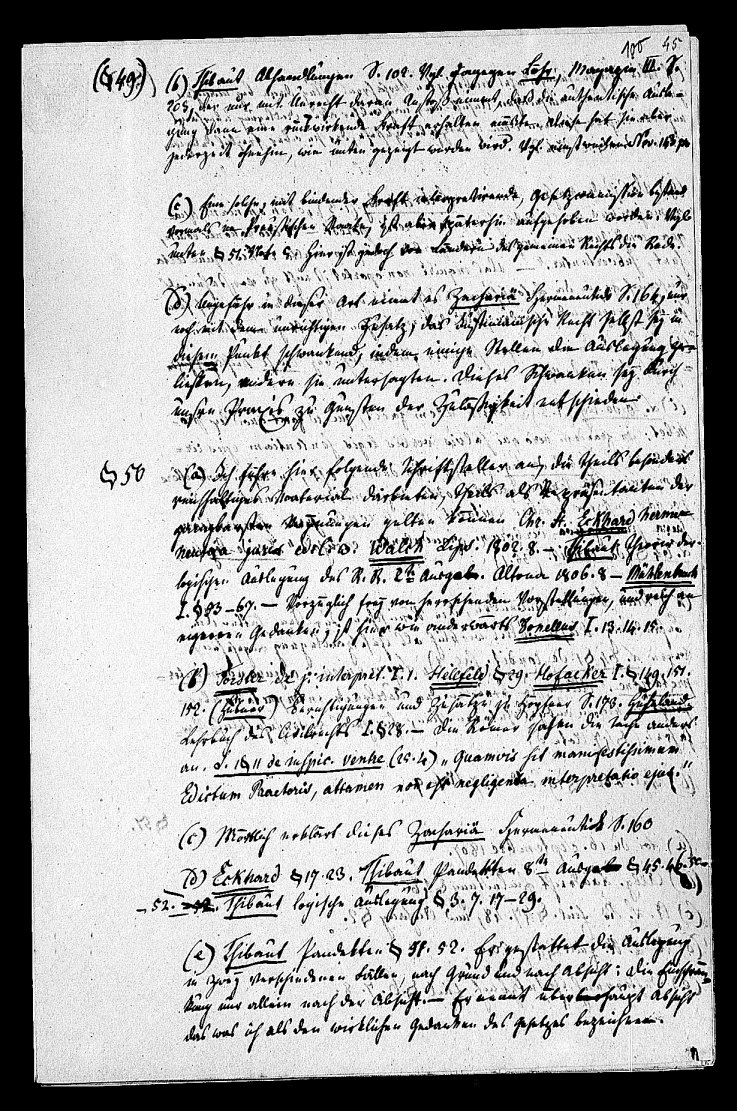 106 45
(§49.) (b) Thibaut Abhandlungen S. 102. Vgl. dagegen Löhr, Magazin III. S.
203, der nur mit Unrecht daran Anstoß nimmt, daß die authentische Ausle-
gung dann eine rückwirkende Kraft erhalten müßte. Diese hat sie aber
jederzeit ohnehin, wie unten gezeigt werden wird. Vgl. einstweilen Nov. 143 pr.
(c) Eine solche, mit bindender Kraft interpretirende, Gesetzcommission bestand
vormals im Preußischen Staate, ist aber späterhin aufgehoben worden. Vgl.
unten § 51. Note c. Hier ist jedoch von Ländern des gemeinen Rechts die Rede.
(d) Ungefähr in dieser Art nimmt es Zachariä Hermeneutik S. 164, nur
noch mit dem unrichtigen Zusatz, das Justinianische Recht selbst sey in
diesem Punkt schwankend, indem einige Stellen die Auslegung zu-
ließen, andere sie untersagten. Dieses Schwanken sey durch
unsre Praxis zu Gunsten der Zulässigkeit entschieden.
§ 50 (a) Ich führe hier folgende Schriftsteller an, die theils besonders
reichhaltiges Material darbieten, theils als Repräsentanten der
gangbarsten Meynungen gelten können Chr. H. Eckhard Herme-
neutica juris ed. C. F. Walch Lips. 1802. 8. — Thibaut Theorie der
logischen Auslegung des R. R. 2te Ausgabe. Altona 1806. 8 — Mühlenbruch
I. § 53–67. — Vorzüglich frey von herrschenden Vorstellungen, und reich an
eigenen Gedanken, ist hier wie anderwärts Donellus I. 13. 14. 15.
(b) Forster de j. interpret. I. 1. Hellfeld § 29. Hofacker I. § 149. 151.
152. (Hübner) Berichtigungen und Zusätze zu Höpfner S. 173. Hufeland
Lehrbuch des Civilrechts I. § 28. — Die Römer sahen die Sache anders
an. L. 1 § 11 de inspic. ventre (25. 4) „Quamvis sit manifestissimum
Edictum Praetoris, attamen non est negligenda interpretatio ejus."
(c) Wörtlich erklärt dieses Zachariä Hermeneutik S. 160
(d) Eckhard § 17. 23. Thibaut Pandekten 8te Ausgabe § 45. 46. 50.
– 52. Thibaut logische Auslegung § 3. 7. 17–29.
(e) Thibaut Pandekten § 51. 52. Er gestattet die Auslegung
in zwey verschiedenen Fällen, nach Grund und nach Absicht: die Einschrän-
kung nur allein nach der Absicht. — Er nennt überhaupt Absicht
das was ich als den wirklichen Gedanken des Gesetzes bezeichne.